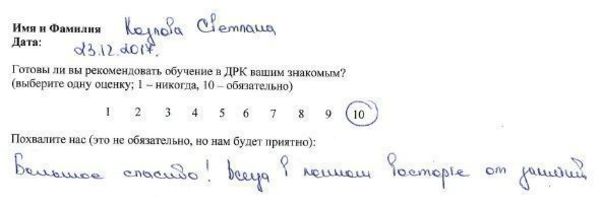 Имя и Фамилия Козлова Светлана
Дата: 23.12.2017.
Готовы ли вы рекомендовать обучение в ДРК вашим знакомым?
(выберите одну оценку; 1 – никогда, 10 – обязательно)
1 2 3 4 5 6 7 8 9 10
Похвалите нас (это не обязательно, но нам будет приятно):
Большое спасибо! Всегда в полном восторге от занятий